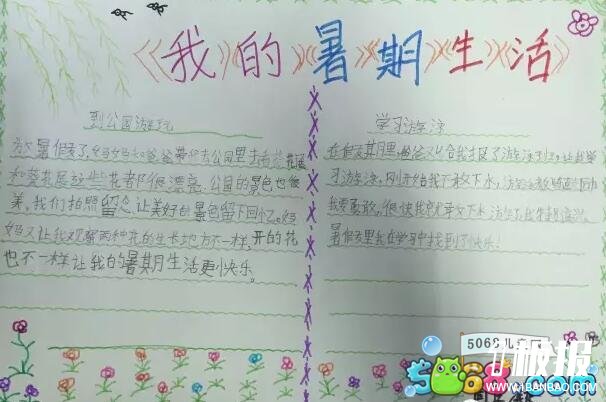 《我的暑期生活》
到公园游玩
放暑假了,妈妈和爸爸带我去公园里去看荷花展
和葵花展这些花者都很漂亮.公园的景色也很
美。我们拍照留念,让美好的景色留下回忆。妈
妈又让我观察两种花的生长地方不一样,开的花
也不一样让我的暑期生活更快乐。
学习游泳
在假期里,爸爸又给我报了游泳班,让我学
习游泳,刚开始我不敢下水,游泳教练
我要勇敢,很快我就敢下水游泳了
暑假里我在学习中找到了快乐!
5068儿
5068.com
极报
WWW.1BANBAO.COM